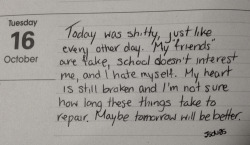 Tuesday
16
October
Today was sh.tty, just like
every other day. "My "friends"
are fake, school doesn't interest
me, and I hate myself. My heart
is still broken and I'm not sure
how long these things take to
repair. Maybe tomorrow will be better.